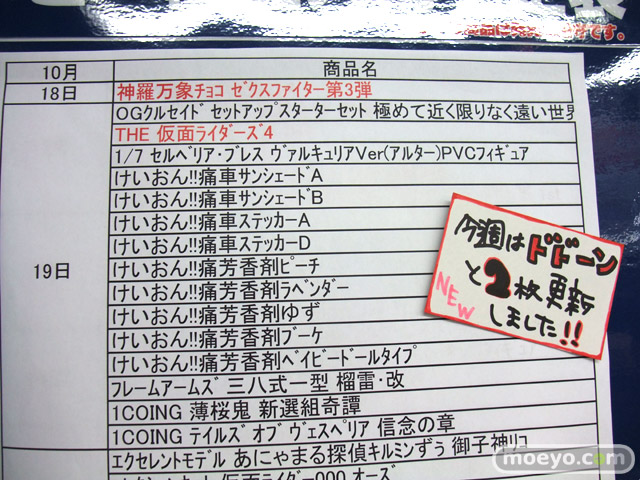 です。
10月 商品名
18日 神羅万象ﾁｮｺ ｾﾞｸｽﾌｧｲﾀｰ第3弾
OGｸﾙｾｲﾄﾞ ｾｯﾄｱｯﾌﾟｽﾀｰﾀｰｾｯﾄ 極めて近く限りなく遠い世界
THE 仮面ﾗｲﾀﾞｰｽﾞ4
1/7 ｾﾙﾍﾞﾘｱ･ﾌﾞﾚｽ ｳﾞｧﾙｷｭﾘｱVer(ｱﾙﾀｰ)PVCﾌｨｷﾞｭｱ
けいおん!!痛車ｻﾝｼｪｰﾄﾞA
けいおん!!痛車ｻﾝｼｪｰﾄﾞB
けいおん!!痛車ｽﾃｯｶｰA
けいおん!!痛車ｽﾃｯｶｰD
19日 けいおん!!痛芳香剤ﾋﾟｰﾁ
けいおん!!痛芳香剤ﾗﾍﾞﾝﾀﾞｰ
けいおん!!痛芳香剤ゆず
けいおん!!痛芳香剤ﾌﾞｰｹ
けいおん!!痛芳香剤ﾍﾞｲﾋﾞｰﾄﾞｰﾙﾀｲﾌﾟ
ﾌﾚｰﾑｱｰﾑｽﾞ 三八式一型 榴雷･改
1COING 薄桜鬼 新選組奇譚
1COING ﾃｲﾙｽﾞ ｵﾌﾞ ｳﾞｪｽﾍﾟﾘｱ 信念の章
ｴｸｾﾚﾝﾄﾓﾃﾞﾙ あにゃまる探偵ｷﾙﾐﾝずぅ 御子神ﾘｺ
仮面ﾗｲﾀﾞｰ000 ｵｰｽﾞ
今週はドドーン
と2枚更新
しました!!
NEW
moeyo.com